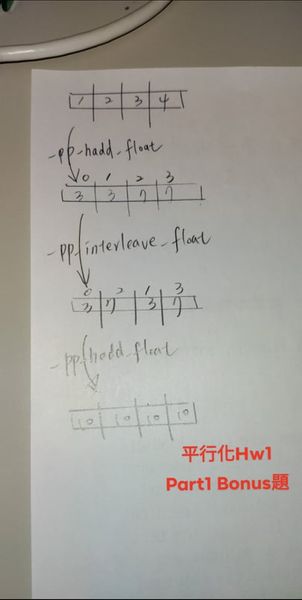 1 2 3 4
_pp_hadd_float
0 1 2 3
3 3 7 7
_pp_interleave_float
0 2 1 3
3 7 3 7
_pp_hadd_float
10 10 10 10
平行化Hw1
Part1 Bonus題